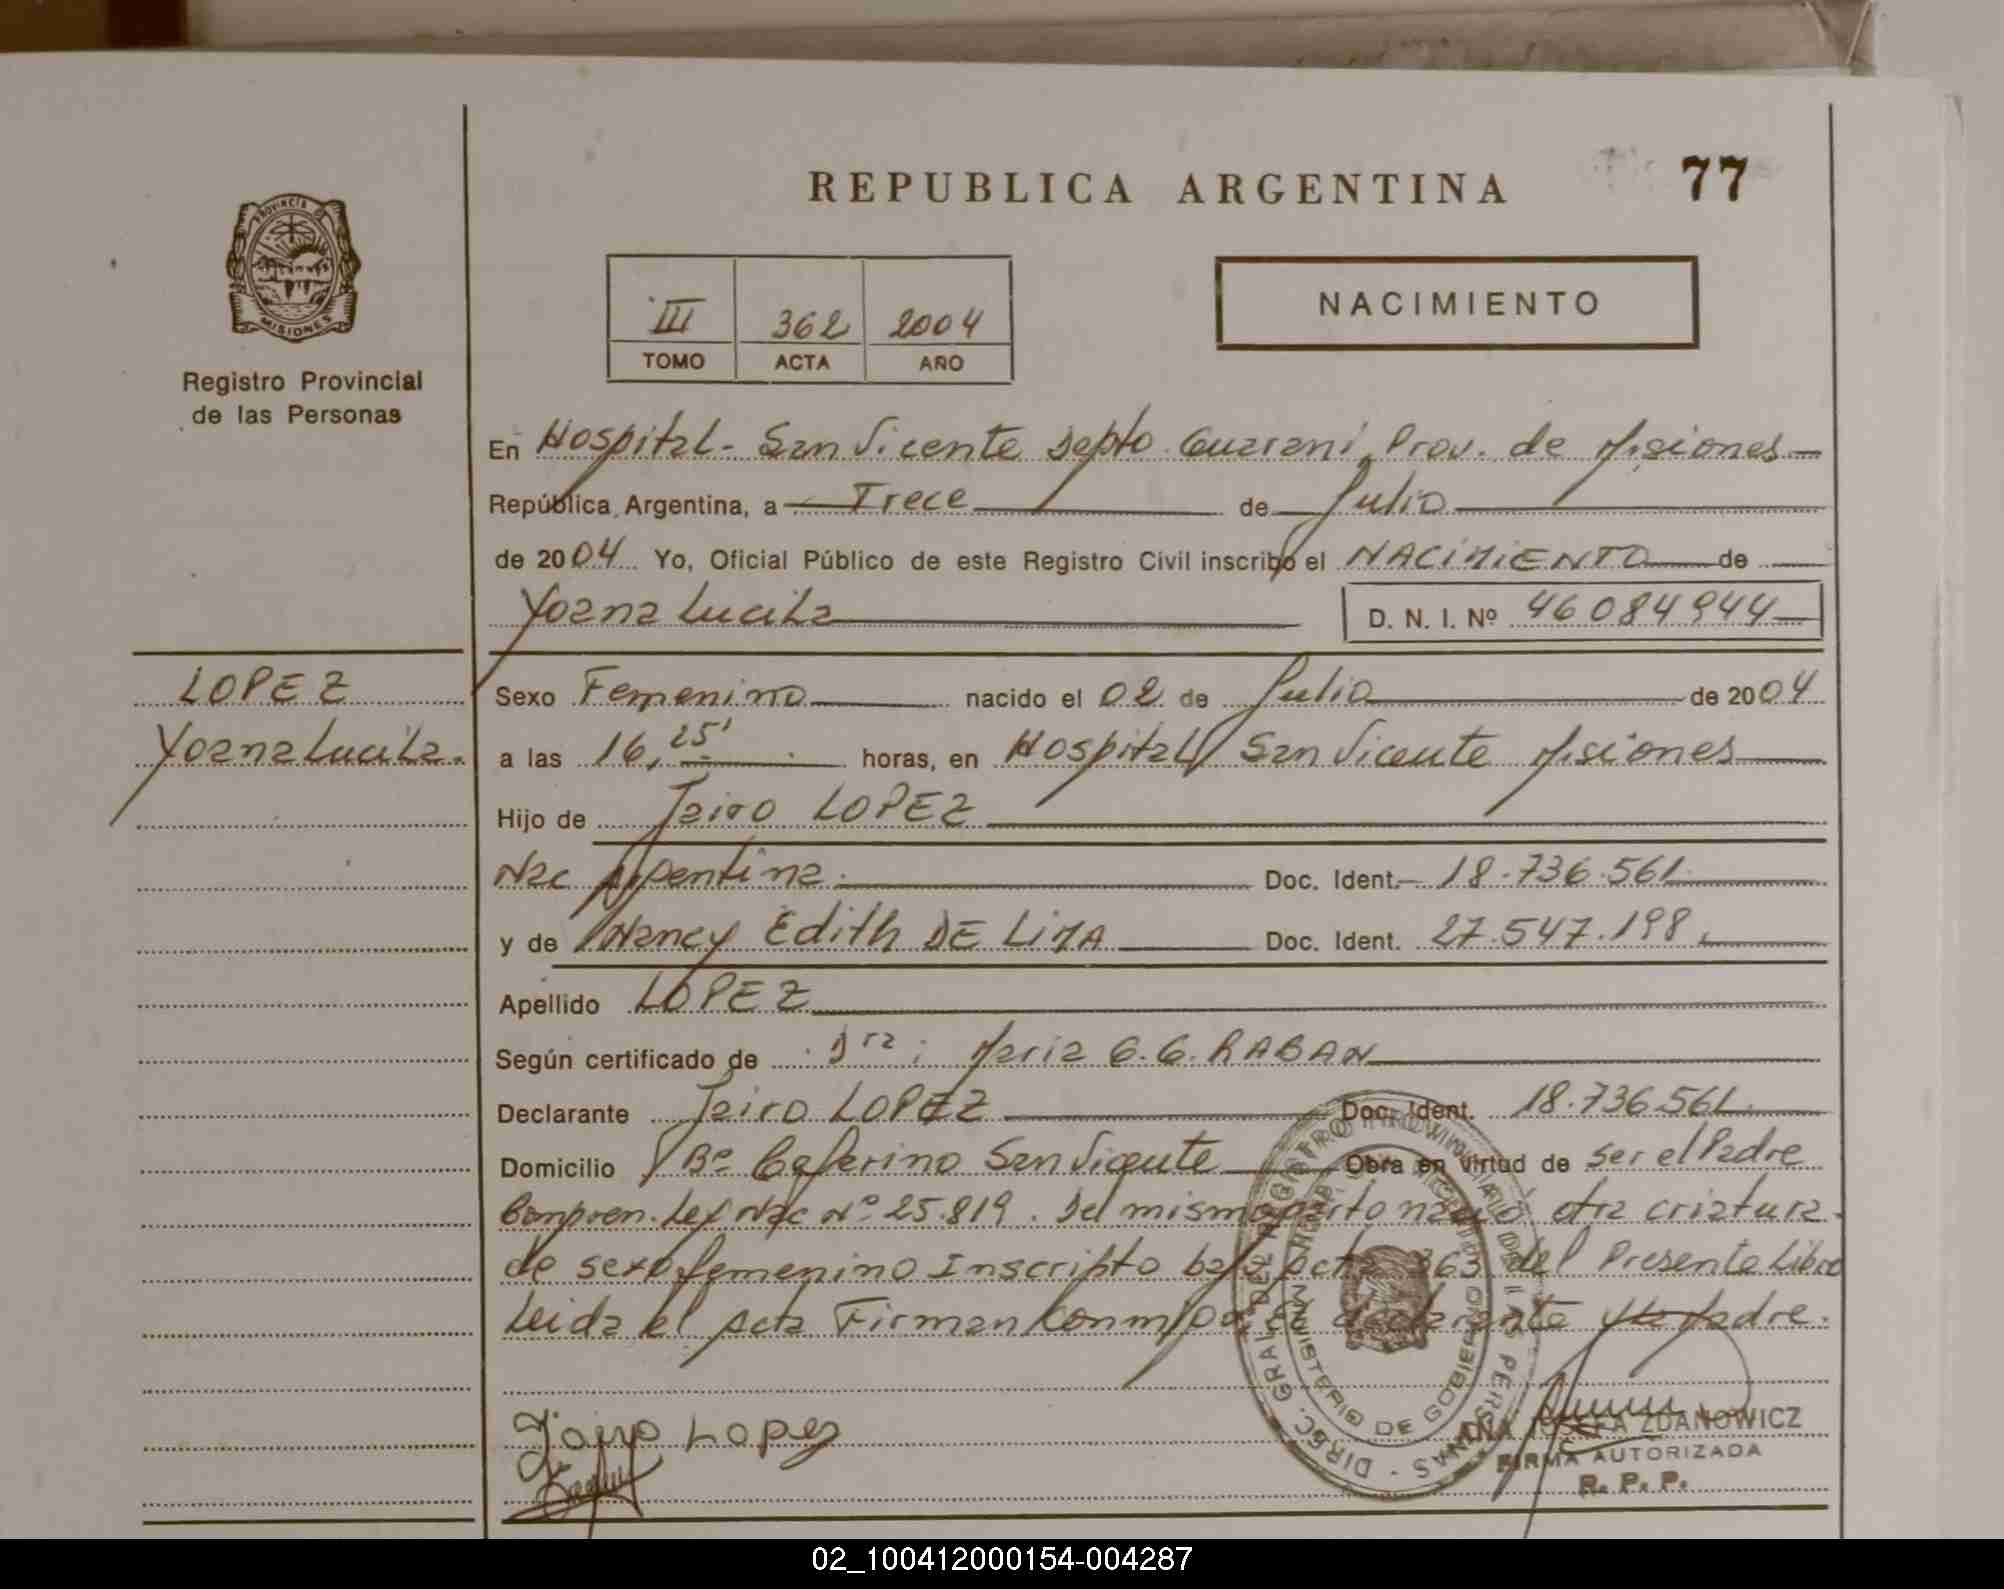 REPUBLICA ARGENTINA 77
PROVINCIA DE
MISIONES
Registro Provincial
de las Personas
III 362 2004
TOMO ACTA AÑO
NACIMIENTO
En Hospital - San Vicente Depto. Guarani, Prov. de Misiones
República Argentina, a Trece de Julio
de 2004 Yo, Oficial Público de este Registro Civil inscribo el NACIMIENTO de
Yoana Lucila D. N. I. Nº 46084944
LOPEZ
Yoana Lucila.
Sexo Femenino nacido el 02 de Julio de 2004
a las 16,25' horas, en Hospital San Vicente Misiones
Hijo de Jairo LOPEZ
Nac Argentina. Doc. Ident. 18.736.561
y de Nancy Edith DE LIMA Doc. Ident. 27.547.198.
Apellido LOPEZ
Según certificado de Dra: Maria G.G. RABAN
Declarante Jairo LOPEZ Doc. Ident. 18.736.561
Domicilio Bº Ceferino San Vicente Obra en virtud de ser el Padre
Compren. Ley Nac Nº 25.819. Del mismo parto nació otra criatura
de sexo femenino Inscripto bajo Acta 363 del Presente Libro
Leida el Acta Firman Conmigo, El declarante y la Madre.
Jairo Lopez
DIREC. GRAL. DEL REGISTRO PROVINCIAL DE LAS PERSONAS
MINISTERIO DE GOBIERNO
ANA JOSEFA ZDANOWICZ
FIRMA AUTORIZADA
R. P. P.
02_100412000154-004287